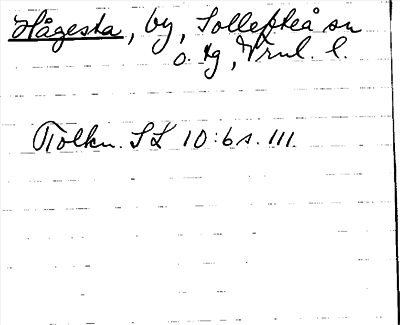 Hågesta, by, Sollefteå sn
o. tg, Vrnl. l.
Tolkn. SL 10:6 s. 111.